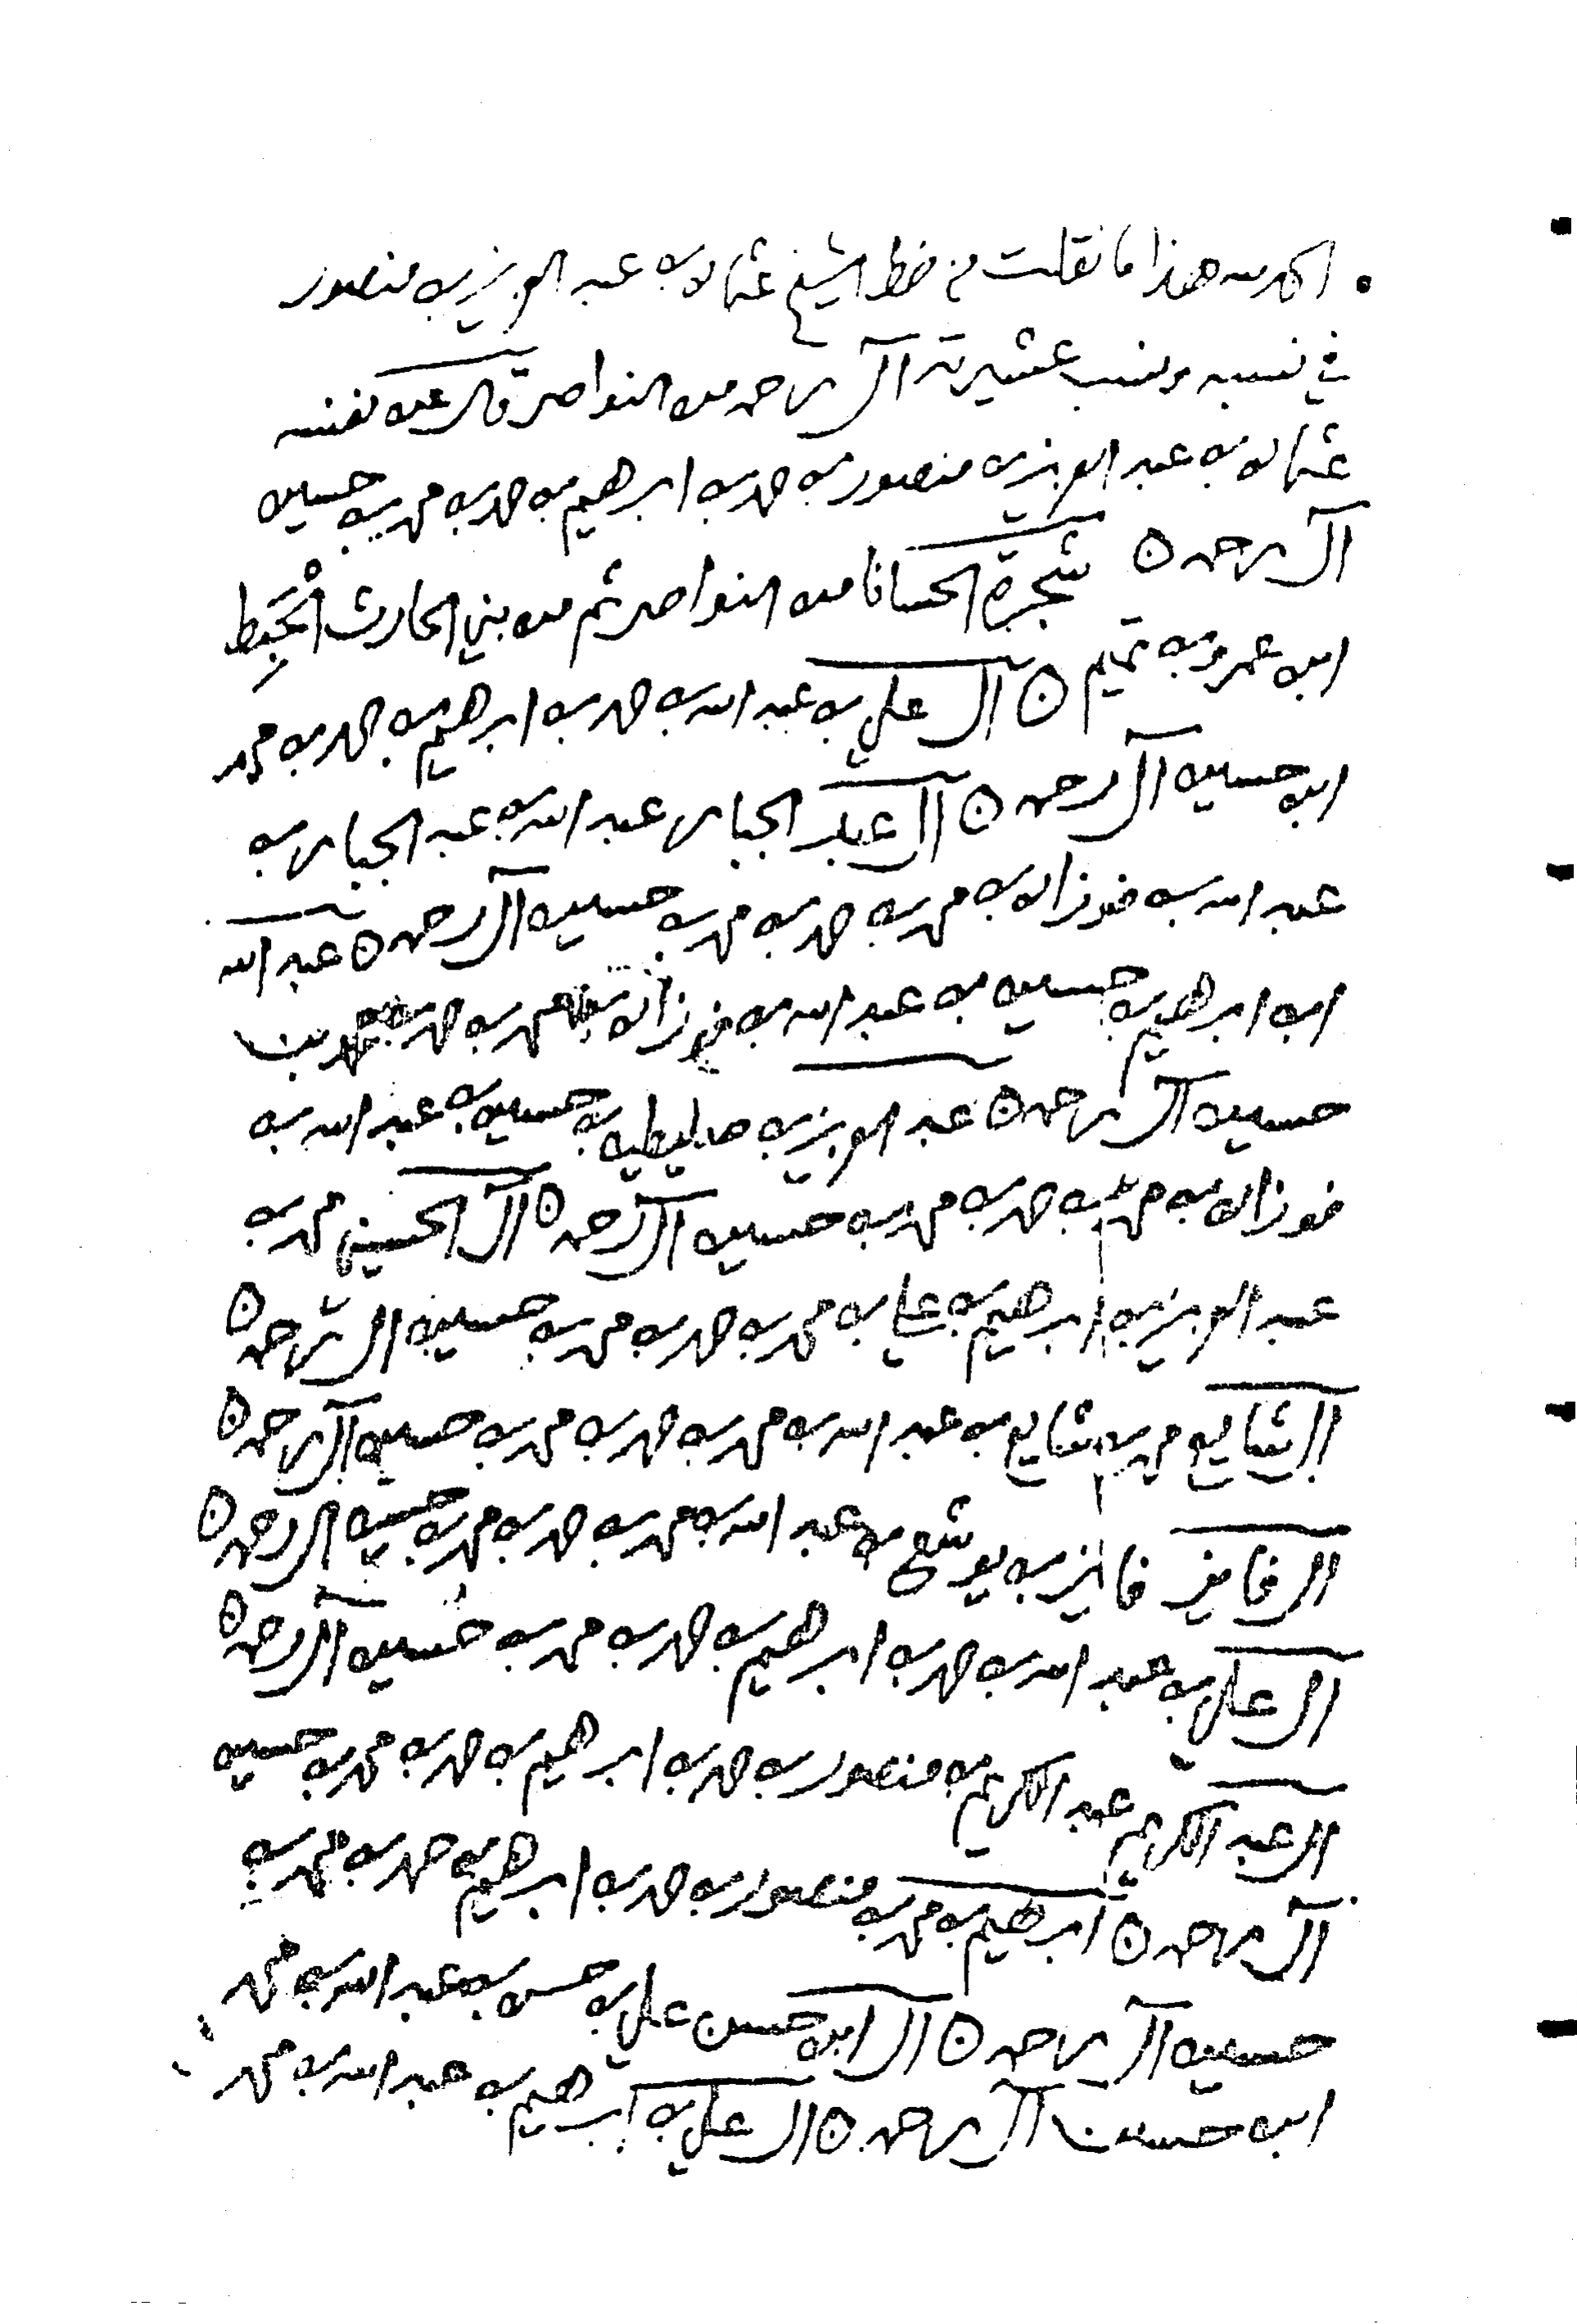 الحمد لله هذا ما نقلت من خط الشيخ عثمان بن عبد العزيز بن منصور
في نسبه ونسب عشيرته آل رحمه من النواصر قال عن نفسه
عثمان بن عبد العزيز بن منصور بن حمد بن ابرهيم بن حمد بن محمد بن حسين
آل رحمه ۞ شجرة الحسانا من النواصر ثم من بني الحارث الحَبِط
ابن عمرو بن تميم ۞ آل علي بن عبد الله بن حمد بن ابرهيم بن حمد بن محمد
ابن حسين آل رحمه ۞ آل عبد الجبار عبد الله بن عبد الجبار بن
عبد الله بن فوزان بن محمد بن حمد بن محمد بن حسين آل رحمه ۞ عبد الله
ابن ابرهيم بن حسين بن عبد الله بن فوزان بن محمد بن حمد بن محمد بن
حسين آل رحمه ۞ عبد العزيز بن صليطين بن حسين بن عبد الله بن
فوزان بن محمد بن حمد بن محمد بن حسين آل رحمه ۞ آل الحسيني محمد بن
عبد العزيز بن ابرهيم بن علي بن محمد بن حمد بن محمد بن حسين آل رحمه ۞
آل شايع محمد بن شايع بن عبد الله بن محمد بن حمد بن محمد بن حسين آل رحمه ۞
آل فايز فايز بن يوشع بن عبد الله بن محمد بن حمد بن محمد بن حسين آل رحمه ۞
آل علي بن عبد الله بن حمد بن ابرهيم بن حمد بن محمد بن حسين آل رحمه ۞
آل عبد الكريم عبد الكريم بن منصور بن حمد بن ابرهيم بن حمد بن محمد بن حسين
آل رحمه ۞ ابرهيم بن محمد بن منصور بن حمد بن ابرهيم بن حمد بن محمد بن
حسين آل رحمه ۞ آل ابن حسن علي بن حسن بن عبد الله بن محمد
ابن حسين آل رحمه ۞ آل علي بن ابرهيم بن عبد الله بن محمد